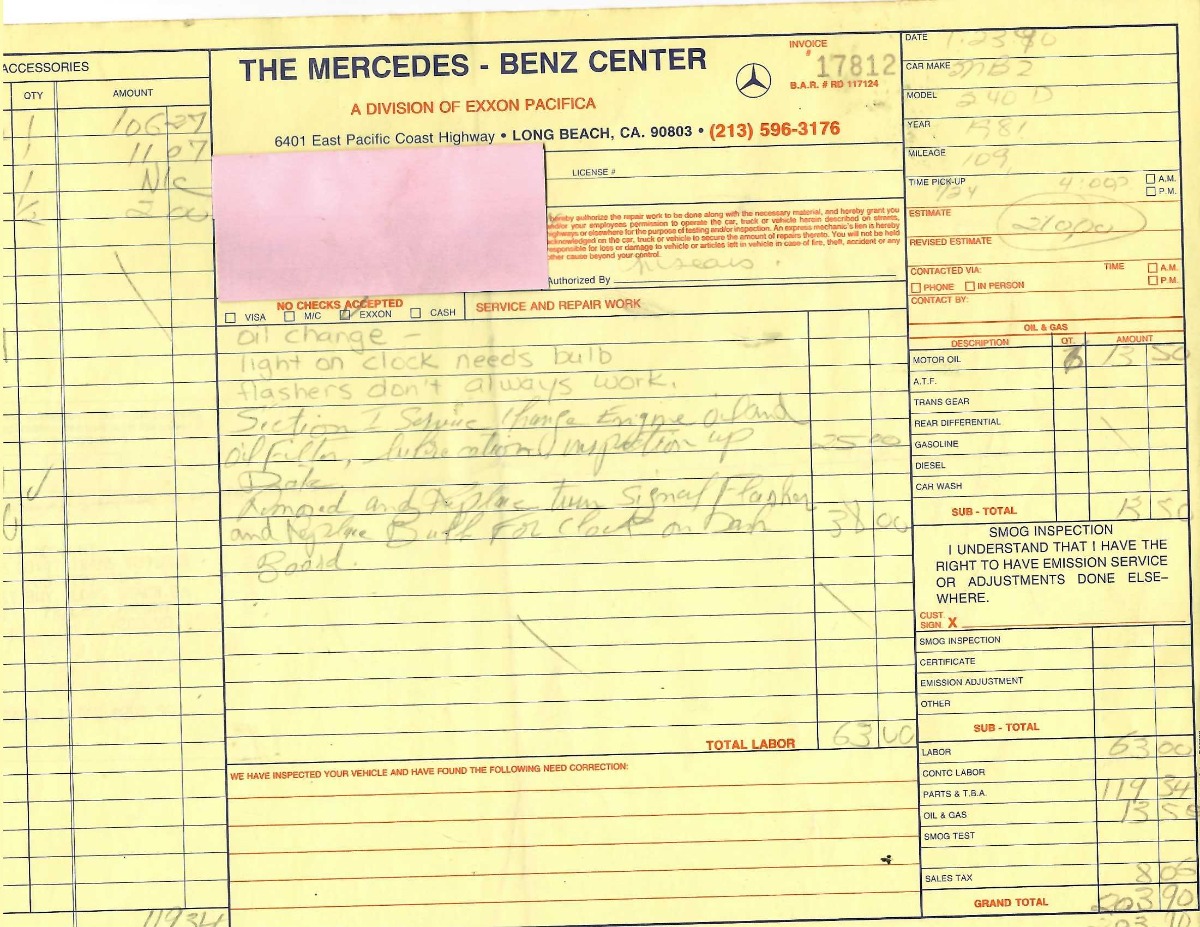 ACCESSORIES
QTY AMOUNT
1 106 27
1 11 07
1 N/C
1/2 2 00
119 34
THE MERCEDES - BENZ CENTER
A DIVISION OF EXXON PACIFICA
6401 East Pacific Coast Highway • LONG BEACH, CA. 90803 • (213) 596-3176
INVOICE
# 17812
B.A.R. # RD 117124
LICENSE #
hereby authorize the repair work to be done along with the necessary material, and hereby grant you
and/your employees permission to operate the car, truck or vehicle herein described on streets,
highways or elsewhere for the purpose of testing and/or inspection. An express mechanic's lien is hereby
acknowledged on the car, truck or vehicle to secure the amount of repairs thereto. You will not be held
responsible for loss or damage to vehicle or articles left in vehicle in case of fire, theft, accident or any
other cause beyond your control.
Authorized By
NO CHECKS ACCEPTED
VISA M/C EXXON CASH
SERVICE AND REPAIR WORK
oil change -
light on clock needs bulb
flashers don't always work.
Section I Service change Engine oil and
oil Filter, lubrication, inspection up 25 00
Date
Removed and Replace turn Signal Flasher
and Replace Bulb For Clock on Dash 38 00
Board.
TOTAL LABOR 63 00
WE HAVE INSPECTED YOUR VEHICLE AND HAVE FOUND THE FOLLOWING NEED CORRECTION:
DATE 1-23-90
CAR MAKE MBZ
MODEL 240 D
YEAR 1981
MILEAGE 109,
TIME PICK-UP 1/24 4:00 A.M.
P.M.
ESTIMATE 210 00
REVISED ESTIMATE
CONTACTED VIA: TIME A.M.
PHONE IN PERSON P.M.
CONTACT BY:
OIL & GAS
DESCRIPTION QT. AMOUNT
MOTOR OIL 6 13 50
A.T.F.
TRANS GEAR
REAR DIFFERENTIAL
GASOLINE
DIESEL
CAR WASH
SUB - TOTAL 13 50
SMOG INSPECTION
I UNDERSTAND THAT I HAVE THE
RIGHT TO HAVE EMISSION SERVICE
OR ADJUSTMENTS DONE ELSE-
WHERE.
CUST
SIGN. X
SMOG INSPECTION
CERTIFICATE
EMISSION ADJUSTMENT
OTHER
SUB - TOTAL
LABOR 63 00
CONTC LABOR
PARTS & T.B.A. 119 34
OIL & GAS 13 50
SMOG TEST
SALES TAX 8 06
GRAND TOTAL 203 90
203 90